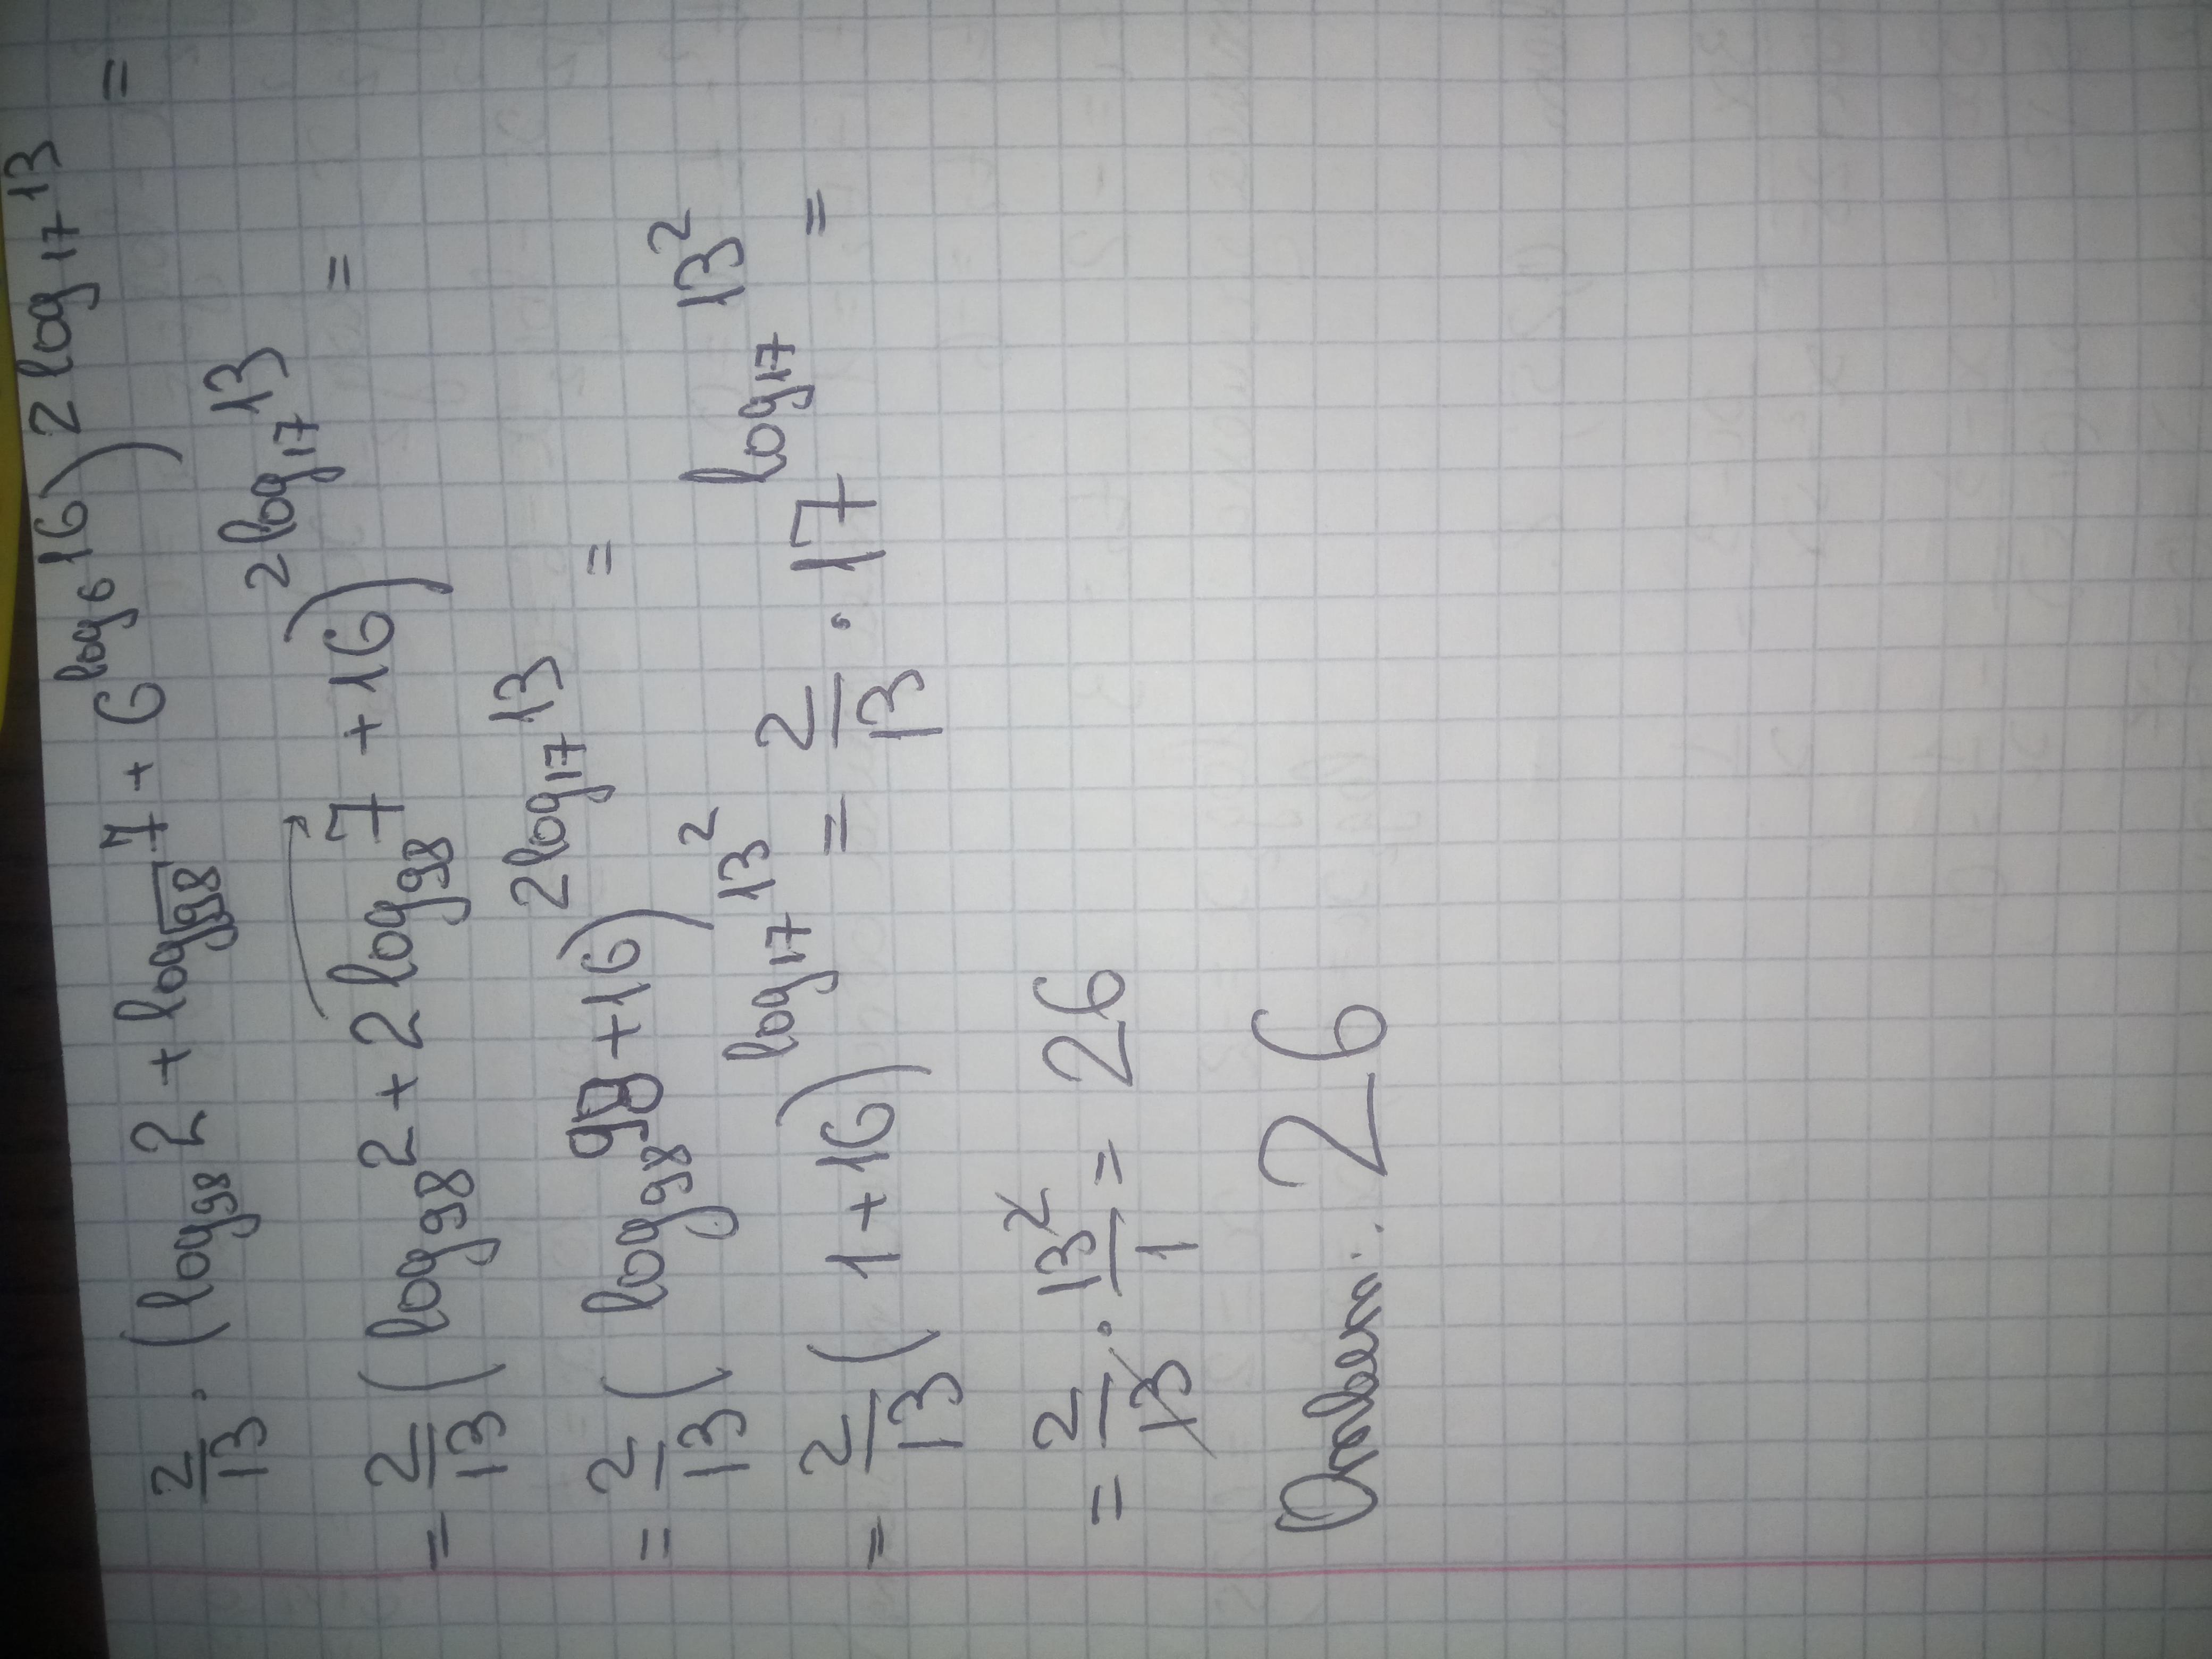 2/13 · (log₉₈ 2 + log_√98 7 + 6^(log₆ 16))^(2 log₁₇ 13) =
= 2/13 (log₉₈ 2 + 2 log₉₈ 7 + 16)^(2 log₁₇ 13) =
= 2/13 (log₉₈ 98 + 16)^(2 log₁₇ 13) =
= 2/13 (1 + 16)^(log₁₇ 13²) = 2/13 · 17^(log₁₇ 13²) =
= 2/13 · 13²/1 = 26
Ответ: 26